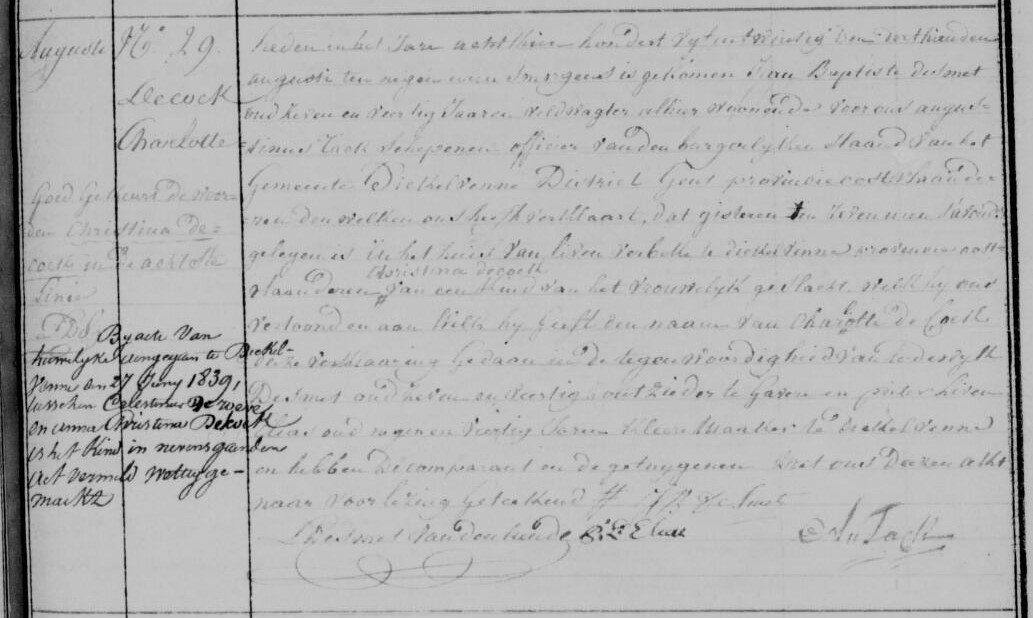 Augusti N.º 29.
Decock
Charlotte
Goed gekeurd de woor-
den Christina de-
cock in de achtste
Linie
By acte van
huwelyk aangegaan te Dickel-
venne den 27 Juny 1839,
tusschen Celestinus De
en anna Christina Decock
is het Kind in nevensgaanden
act vermeld wettig ge-
maekt
heden in het Jare acht thien hondert vyf en twintig den
augusti ten negen uren smorgens is gekomen Jean Baptiste desmet
oud zeven en veertig Jaaren veldwagter alhier woonende voor ons augus-
-tinus Tack Schepenen officier van den burgerlyken staand van het
Gemeente Dickelvenne District Gent provincie oost vlaander
-en den welken ons heeft verklaart, dat gisteren ten zeven uren s'avonds
gelegen is in het huis van liven verbeke te dickelvenne provincie oost-
Christina decock
vlaanderen van een kind van het vrouwelyk geslacht, welk hy ons
vertoond en aan welk hy geeft den naam van Charlotte de Cock
deze verklaaring gedaan in de tegenwoordigheid van
Desmet oud zeven en veertig te Gaver en pieter
Elias oud negen en viertig Jaren kleermaeker te dickelvenne
en hebben de comparant en de getuygenen met ons dezen akt
naar voorlezing Geteekend # J B De Smet
Desmet Vandenhende Elias Tack